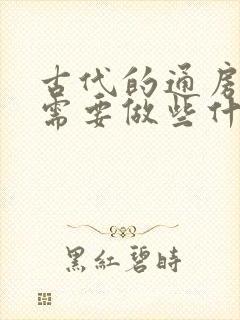 古代的通房
需要做些什
黑紅碧時